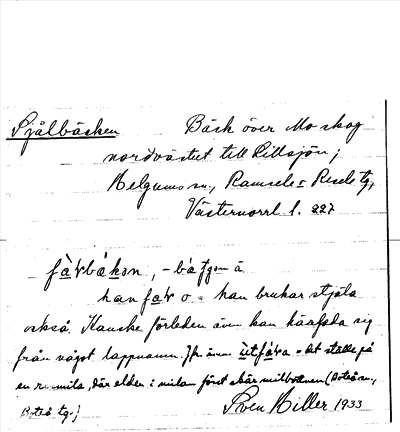 Själbäcken
Bäck över Mo skog
nordvästut till Lillsjön;
Helgums sn, Ramsele o Resele tg,
Västernorrl. l. 227
han brukar stjäla
också. Kanske förleden även kan härleda sig
från något lappnamn. Jfr även = det ställe på
en mila, där elden i milan först när milbottnen (Boteå sn,
Boteå tg.)
Sven Hiller 1933